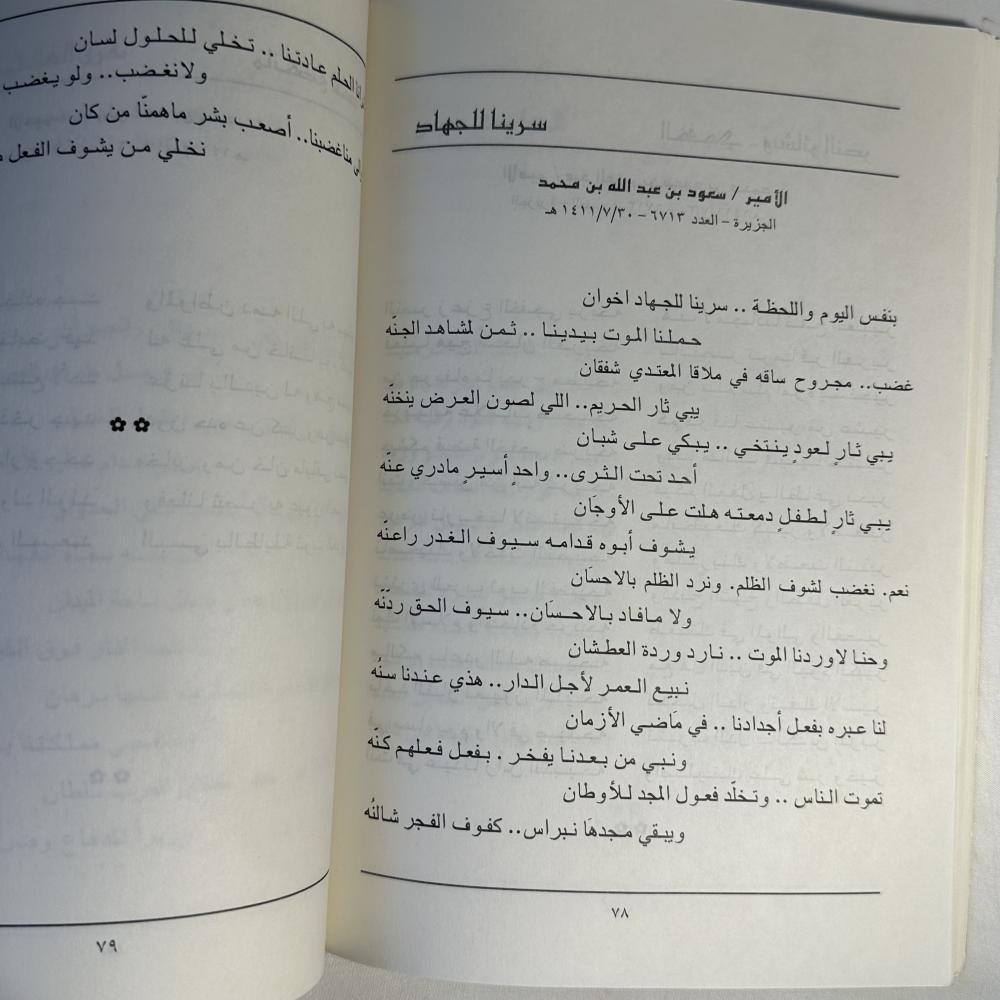 سرينا للجهاد
الأمير / سعود بن عبد الله بن محمد
الجزيرة - العدد ٦٧١٣ - ١٤١١/٧/٣٠ هـ
بنفس اليوم واللحظة .. سرينا للجهاد اخوان
حملنا الموت بيدينا .. ثمن لمشاهد الجنّه
غضب.. مجروح ساقه في ملاقا المعتدي شفقان
يبي ثار الحريم.. اللي لصون العرض ينخنّه
يبي ثارٍ لعودٍ ينتخي .. يبكي على شبان
أحد تحت الثرى.. واحدٍ أسيرٍ مادري عنّه
يبي ثارٍ لطفلٍ دمعته هلت على الأوجَان
يشوف أبوه قدامه سيوف الغدر راعنّه
نعم. نغضب لشوف الظلم. ونرد الظلم بالاحسَان
ولا مافاد بالاحسَان.. سيوف الحق ردّنّه
وحنا لاوردنا الموت .. نارد وردة العطشان
نبيع العمر لأجل الدار.. هذي عندنا سنُه
لنا عبره بفعل أجدادنا .. في مَاضي الأزمان
ونبي من بعدنا يفخر . بفعل فعلهم كنّه
تموت الناس .. وتخلّد فعول المجد للأوطان
ويبقي مجدهَا نبراس.. كفوف الفجر شالنُه
٧٨
الحلم عادتنا .. تخلي للحلول لسان
ولانغضب.. ولو يغضب
مناغضبنا.. أصعب بشر ماهمنّا من كان
نخلي من يشوف الفعل
٧٩